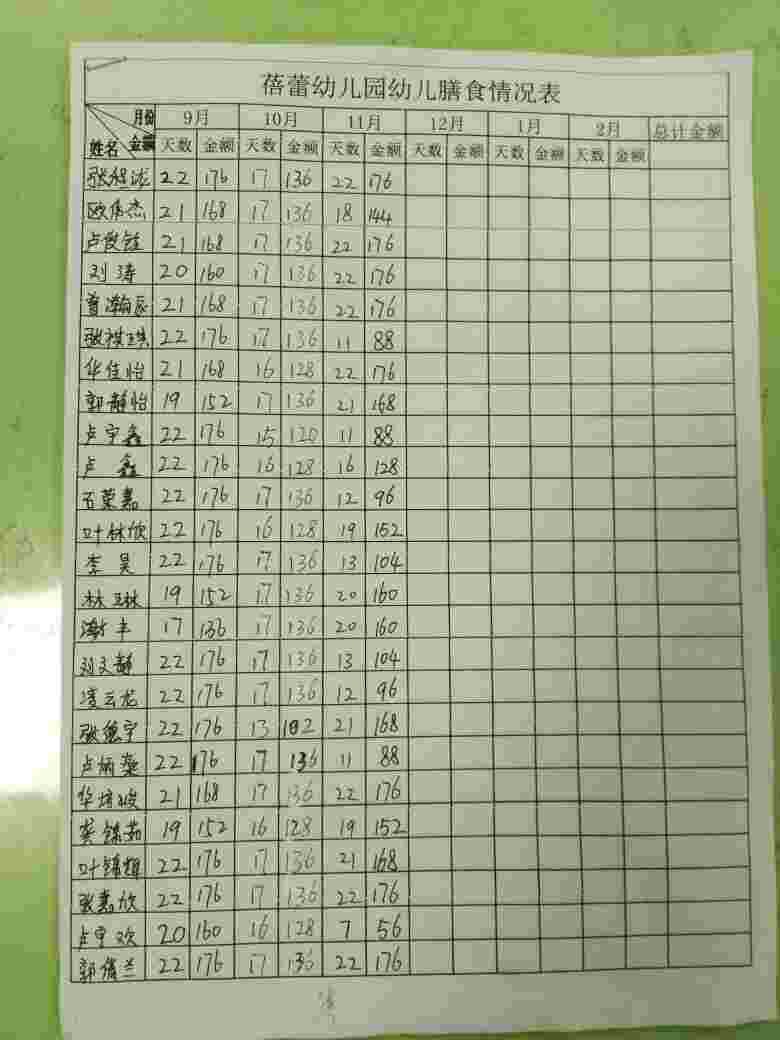 蓓蕾幼儿园幼儿膳食情况表
月份 9月 10月 11月 12月 1月 2月 总计金额
姓名 金额 天数 金额 天数 金额 天数 金额 天数 金额 天数 金额 天数 金额
22 176 17 136 22 176
欧伟杰 21 168 17 136 18 144
卢俊铨 21 168 17 136 22 176
刘涛 20 160 17 136 22 176
曾瀚辰 21 168 17 136 22 176
张祺琪 22 176 17 136 11 88
华佳怡 21 168 16 128 22 176
郭静怡 19 152 17 136 21 168
卢宇鑫 22 176 15 120 11 88
卢鑫 22 176 16 128 16 128
石荣嘉 22 176 17 136 12 96
叶林欣 22 176 16 128 19 152
李昊 22 176 17 136 13 104
林琳 19 152 17 136 20 160
谢丰 17 136 17 136 20 160
刘文静 22 176 17 136 13 104
凌云龙 22 176 17 136 12 96
张德宇 22 176 13 102 21 168
卢炳燊 22 176 17 136 11 88
华培骏 21 168 17 136 22 176
龚锦茹 19 152 16 128 19 152
叶锦超 22 176 17 136 21 168
张嘉欣 22 176 17 136 22 176
卢宇欢 20 160 16 128 7 56
郭倩兰 22 176 17 136 22 176